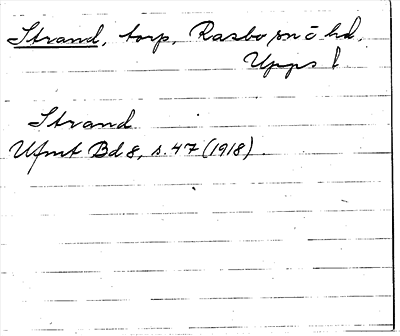 Strand, torp, Rasbo sn o hd,
Upps l.
Strand
Ufmt Bd 8, s. 47 (1918).